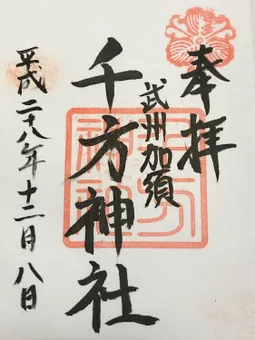 奉拝
武州加須
千方神社
平成二十八年十二月八日